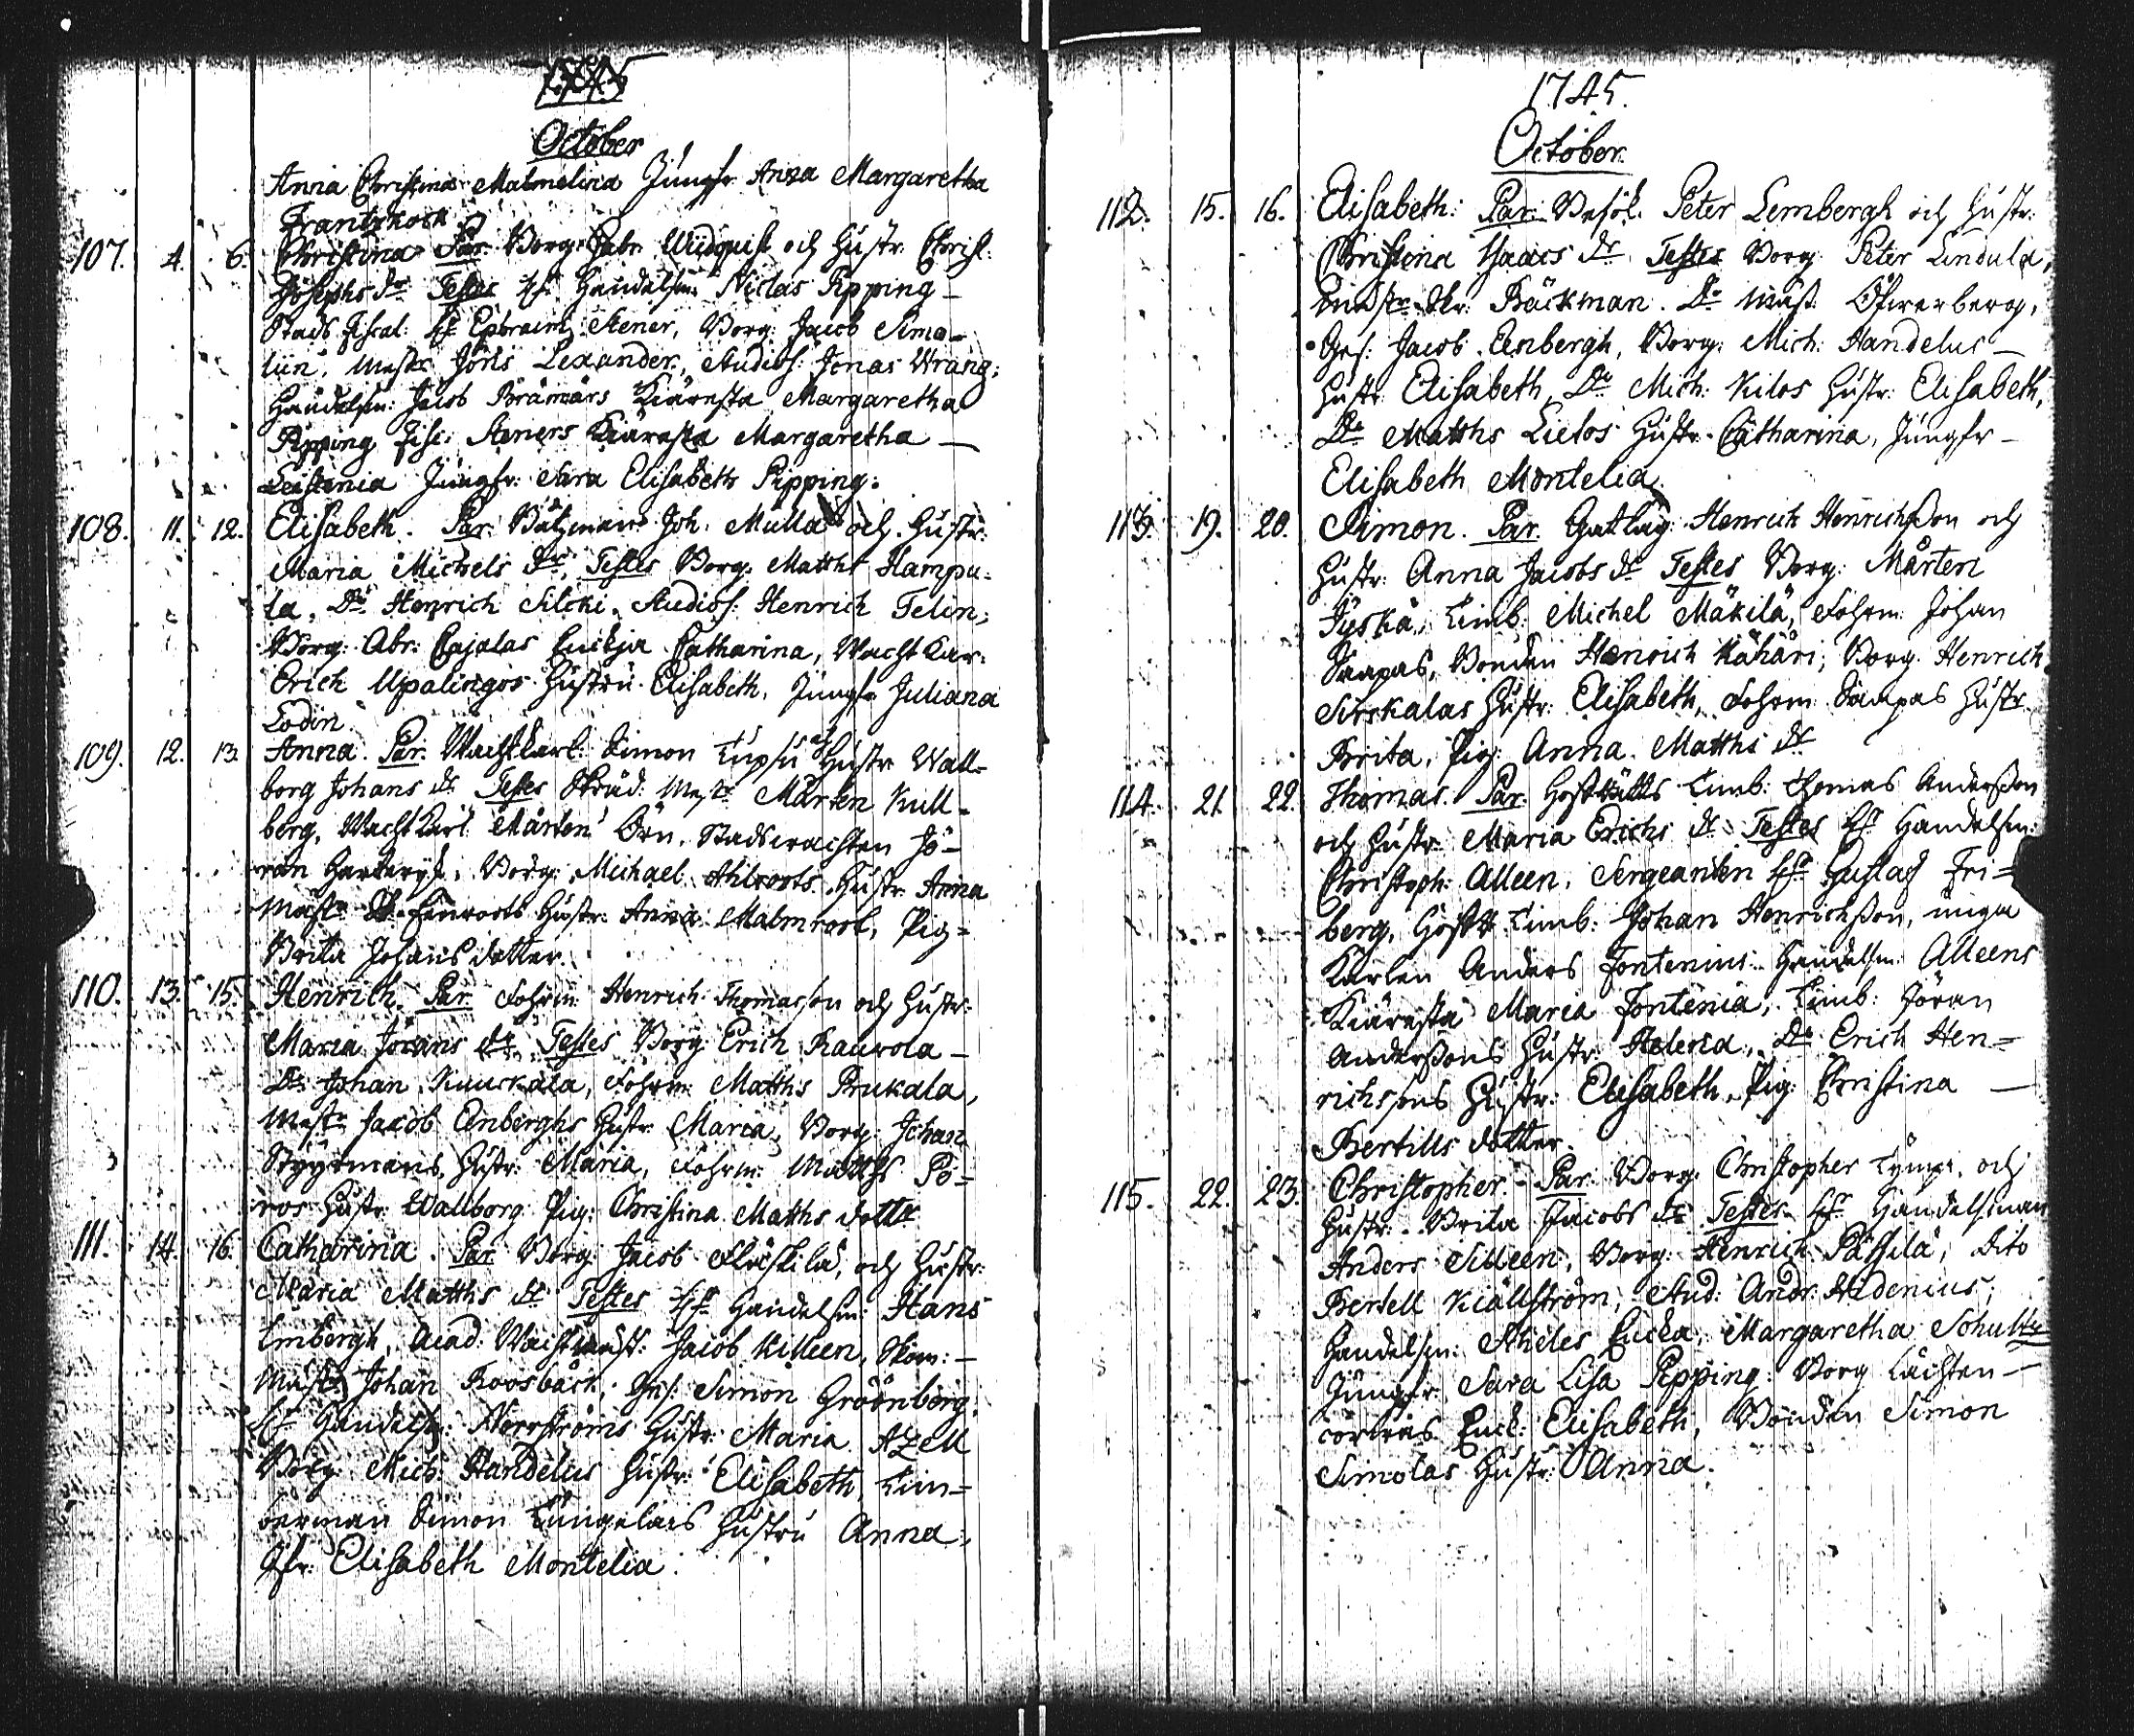 October
Anna Christina Malmelina Jungfr Anna Margaretha
Frantzkock
107. 4. 6. Christina Par. Borg. Gabr. Widquist och Hustr. Christ.
Josephs dr Testes Hr Handelsm. Niclas Pipping
Stads Fiscal: Hr Ephraim Stener, Borg. Jacob Simo-
lin, Mestr Jöris Lexander, Studios: Jonas Wrang,
Handelsm: Jacob Brämärs Kiäresta Margaretha
Pipping, Fisc: Steners Kiäresta Margaretha
Leistenia Jungfr: Sara Elisabeth Pipping.
108. 11. 12. Elisabeth. Par. Båtzman Joh. Mulla och Hustr.
Maria Michels dr, Testes Borg. Matths Hampu-
la, Do Henrich Silcki, Studios: Henrich Telin,
Borg. Abr. Cajalas Enckja Catharina, Wacht Kar.
Erich Upalingos Hustru Elisabeth, Jungfr Juliana
Lodin.
109. 12. 13. Anna. Par. Wachtkarl Simon Lupsu och Hustr Wall-
borg Johans dr Testes Skräd: Mestr Mårten Kull-
berg, Wacht Karl Mårten Örn, Stadswachten Jö-
ran, Borg. Michael Ahlroots Hustr Anna
Mestr Hustr. Anna Malmroot, Pig=
Brita Johans dotter.
110. 13. 15. Henrich. Par. Fohrm. Henrich Thomasson och Hustr.
Maria Jörans dr. Testes Borg Erich Rauvola
Do Johan Kuuskala, Fohrm. Matths Prukala,
Mestr Jacob Enberghs Hustr Maria, Borg. Johan
Styyrmans Hustr. Maria, Fohrm. Matths Po-
ros Hustr. Wallborg Pig: Christina Matths dotter
111. 14. 16. Catharina. Par. Borg. Jacob Fläskilä, och Hustr.
Maria Matths dr Testes Hr Handelsm: Hans
Embergh, Acad. Wachtmest: Jacob Killeen, Skom:
Mestr Johan Roosbäck. Ges. Simon Gröönberg.
Hr Handelsm: Norrströms Hustr. Maria Azell
Borg. Mich: Handelus Hustr. Elisabeth, Tim=
berman Simon Hustru Anna,
Jfr: Elisabeth Montelia.
1745.
October.
112. 15. 16. Elisabeth: Par. Besök. Peter Lembergh och Hustr.
Christina Isaacs dr Testes Borg. Peter Lindula,
Bäckman. Do Mest.
Ges: Jacob Enbergh, Borg: Mich: Handelus
Hustr Elisabeth, Do Mich: Kilos Hustr. Elisabeth,
Do Matths Lielos Hustr. Catharina, Jungfr
Elisabeth Montelia.
113. 19. 20. Simon. Par. Henrich Henrichsson och
Hustr. Anna Jacobs dr Testes Borg. Mårten
Jyskä, Timb. Michel Mäkilä, Fohrm Johan
Saapas, Bonden Henrich Kähäri, Borg. Henrich
Sirskalas Hustr. Elisabeth, Fohrm Saapas Hustr
Brita, Pig. Anna Matths dr
114. 21. 22. Thomas. Par. Timb. Thomas Andersson
och Hustr. Maria Erichs dr Testes Hr Handelsm:
Christoph: Alleen, Sergeanten Hr Gustaf Fri=
berg, Timb: Johan Henrichsson, unga
Karlen Anders Fontenius, Handelsm: Alleens
Kiäresta Maria Fontenia, Timb: Jöran
Anderssons Hustr. Helena, Do Erich Hen=
richssons Hustr: Elisabeth, Pig: Christina
Bertills dotter.
115. 22. 23. Christopher. Par. Borg. Christopher och
Hustr. Brita Jacobs dr Testes Hr Handelsman
Anders Silleen, Borg: Henrich Pässilä, Dito
Bertell Kiällström, Stud: Andr. Aidenius,
Handelsm: Enka, Margaretha Schultz
Jungfr. Sara Lisa Pipping. Borg
Enck: Elisabeth, Bonden Simon
Simolas Hustr. Anna.